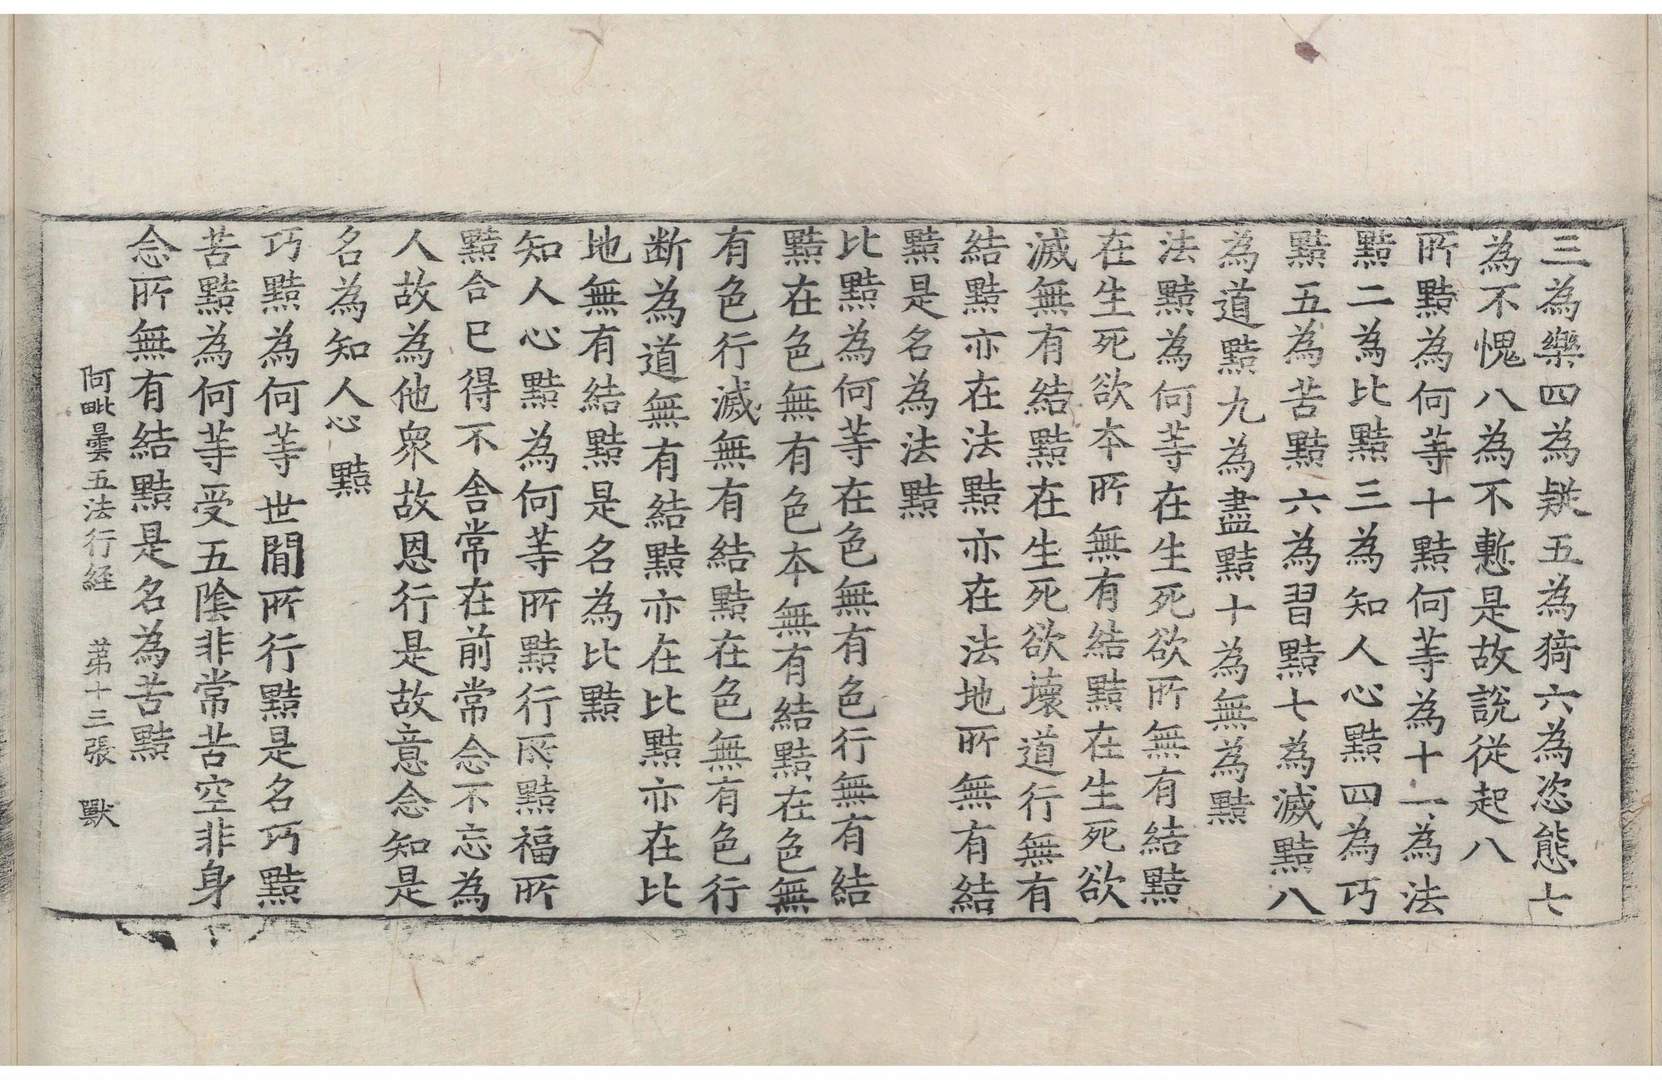 三為樂四為疑五為猗六為恣態七
為不愧八為不慙是故說從起八
所黠為何等十黠何等為十一為法
黠二為比黠三為知人心黠四為巧
黠五為苦黠六為習黠七為滅黠八
為道黠九為盡黠十為無為黠
法黠為何等在生死欲所無有結黠
在生死欲本所無有結黠在生死欲
滅無有結黠在生死欲壞道行無有
結黠亦在法黠亦在法地所無有結
黠是名為法黠
比黠為何等在色無有色行無有結
黠在色無有色本無有結黠在色無
有色行滅無有結黠在色無有色行
断為道無有結黠亦在比黠亦在比
地無有結黠是名為比黠
知人心黠為何等所黠行所黠福所
黠合已得不舍常在前常念不忘為
人故為他衆故恩行是故意念知是
名為知人心黠
巧黠為何等世間所行黠是名巧黠
苦黠為何等受五陰非常苦空非身
念所無有結黠是名為苦黠
阿毗曇五法行経 苐十三張 獸